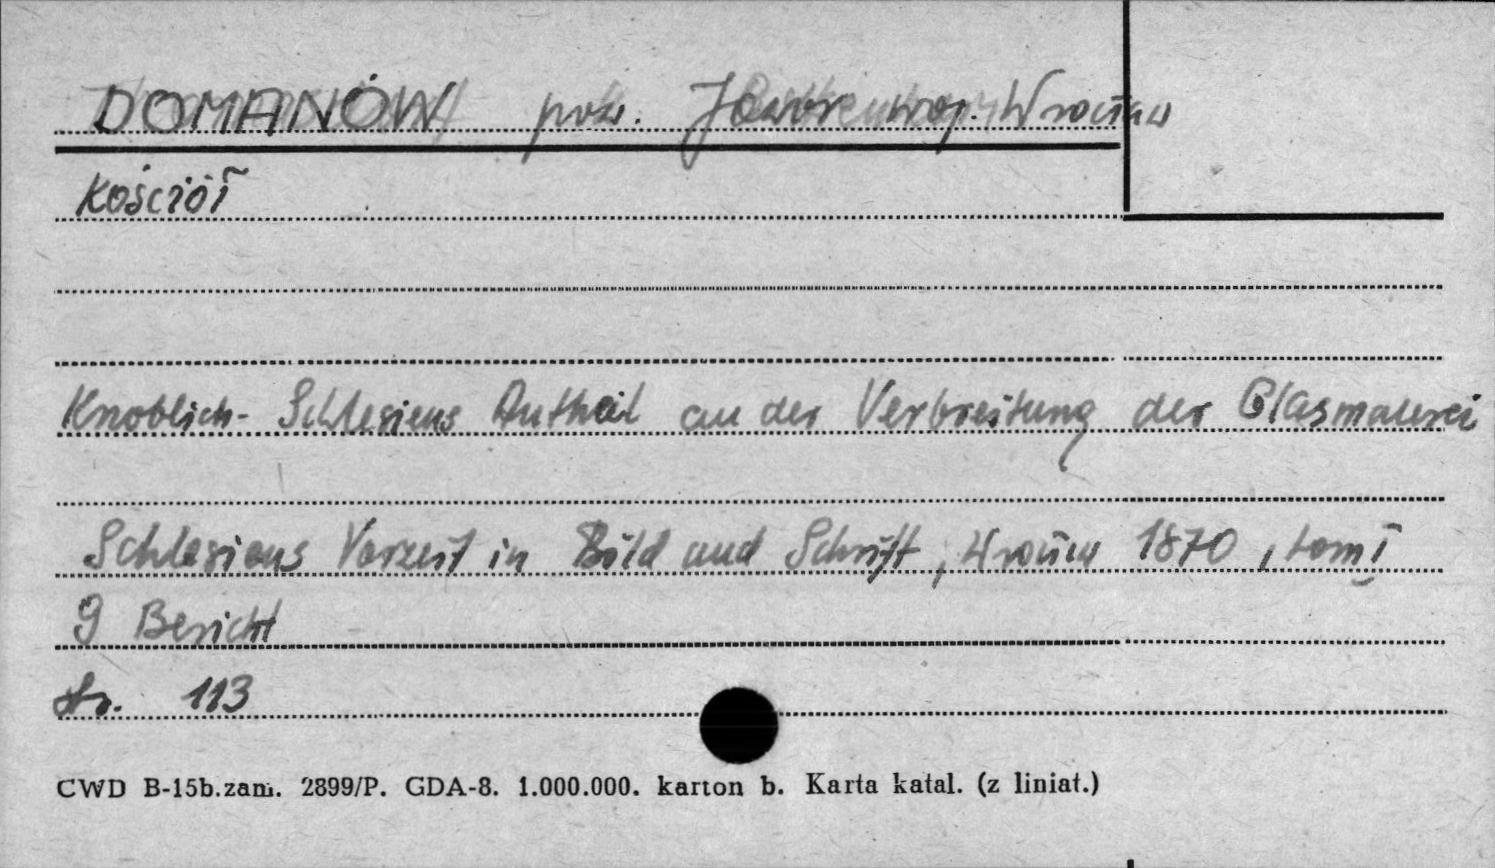 DOMANÓW pow. Jawor woj. Wrocław
Kościół
Knoblich - Schlesiens Antheil an der Verbreitung der Glasmalerei
Schlesiens Vorzeit in Bild und Schrift, Wrocław 1870, tom I
9 Bericht
str. 113
CWD B-15b.zam. 2899/P. GDA-8. 1.000.000. karton b. Karta katal. (z liniat.)